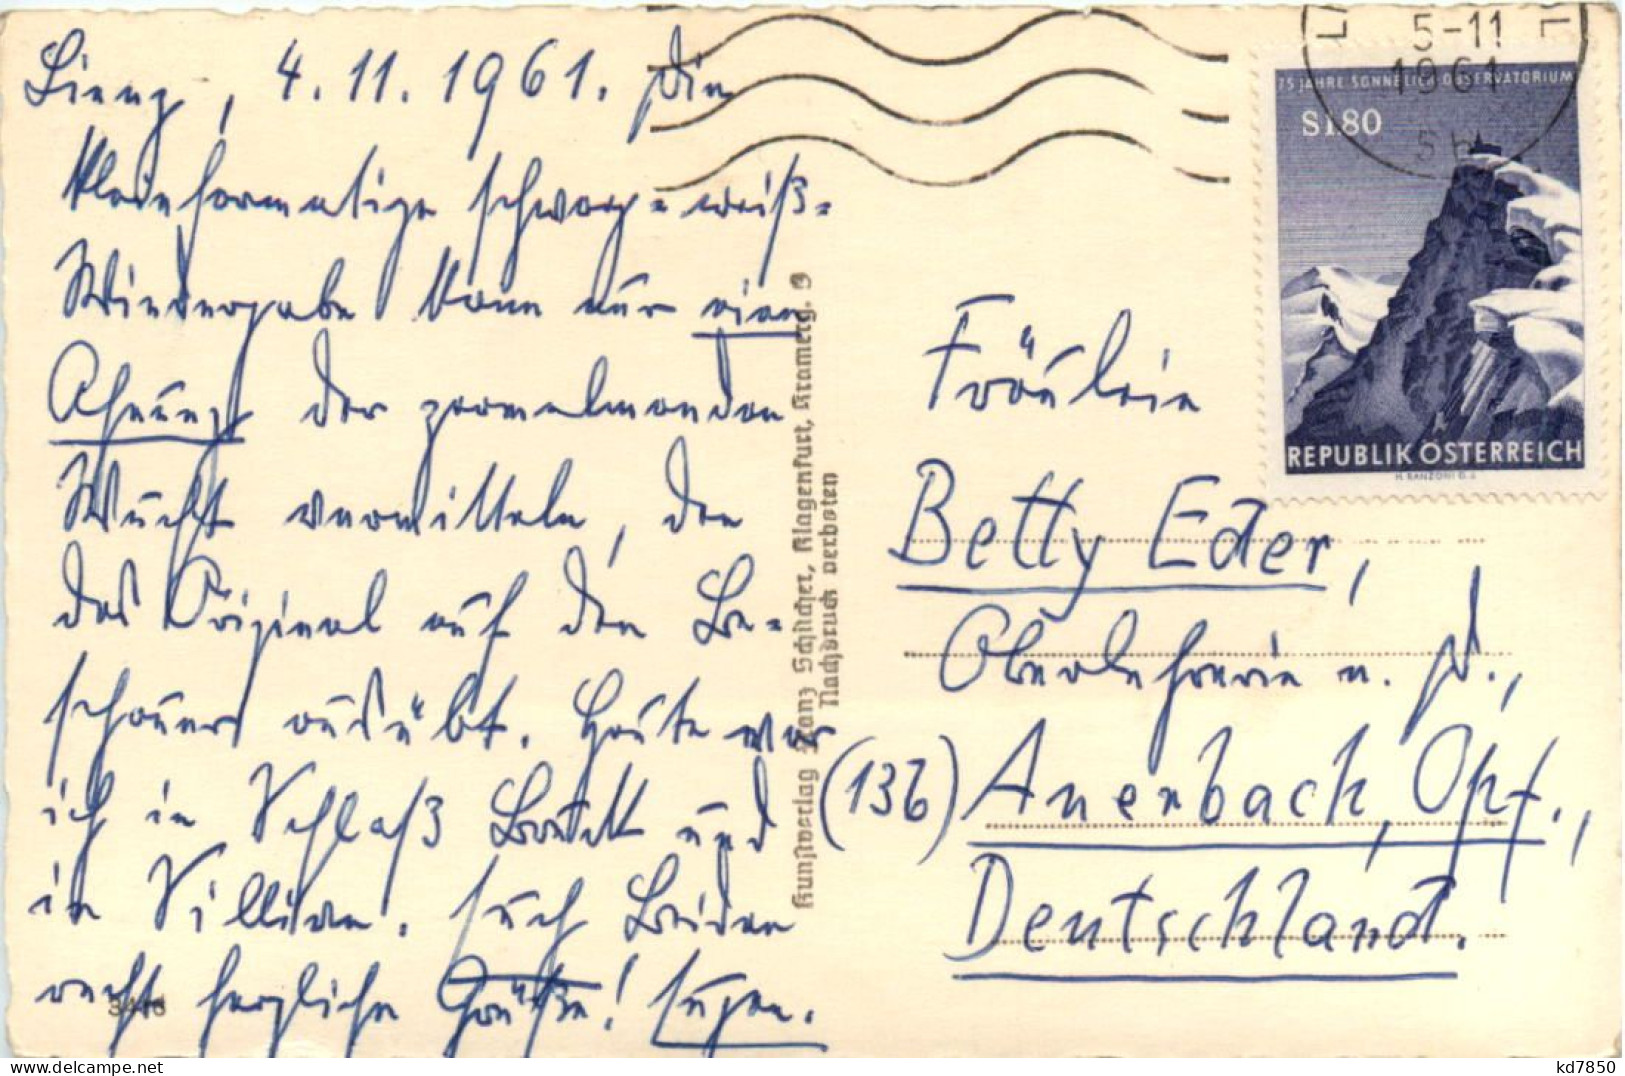 Lienz, 4.11.1961. Die
kleinformatige schwarz-weiß-
Wiedergabe kann nur eine
Ahnung der zermalmenden
Wucht vermitteln, den
das Original auf den Be-
schauer ausübt. Heute war
ich in Schloß Bruck und
in Sillian. Euch Beiden
recht herzliche Grüße! Eugen.
3448
Kunstverlag Franz Schilcher, Klagenfurt, Kramerg. 9
Nachdruck verboten
5-11
1961
75 JAHRE SONNBLICK-OBSERVATORIUM
S 1.80
REPUBLIK ÖSTERREICH
H. RANZONI D. J.
Fräulein
Betty Eder,
Oberlehrerin a. D.,
(13b) Auerbach, Opf.,
Deutschland.
kd7850